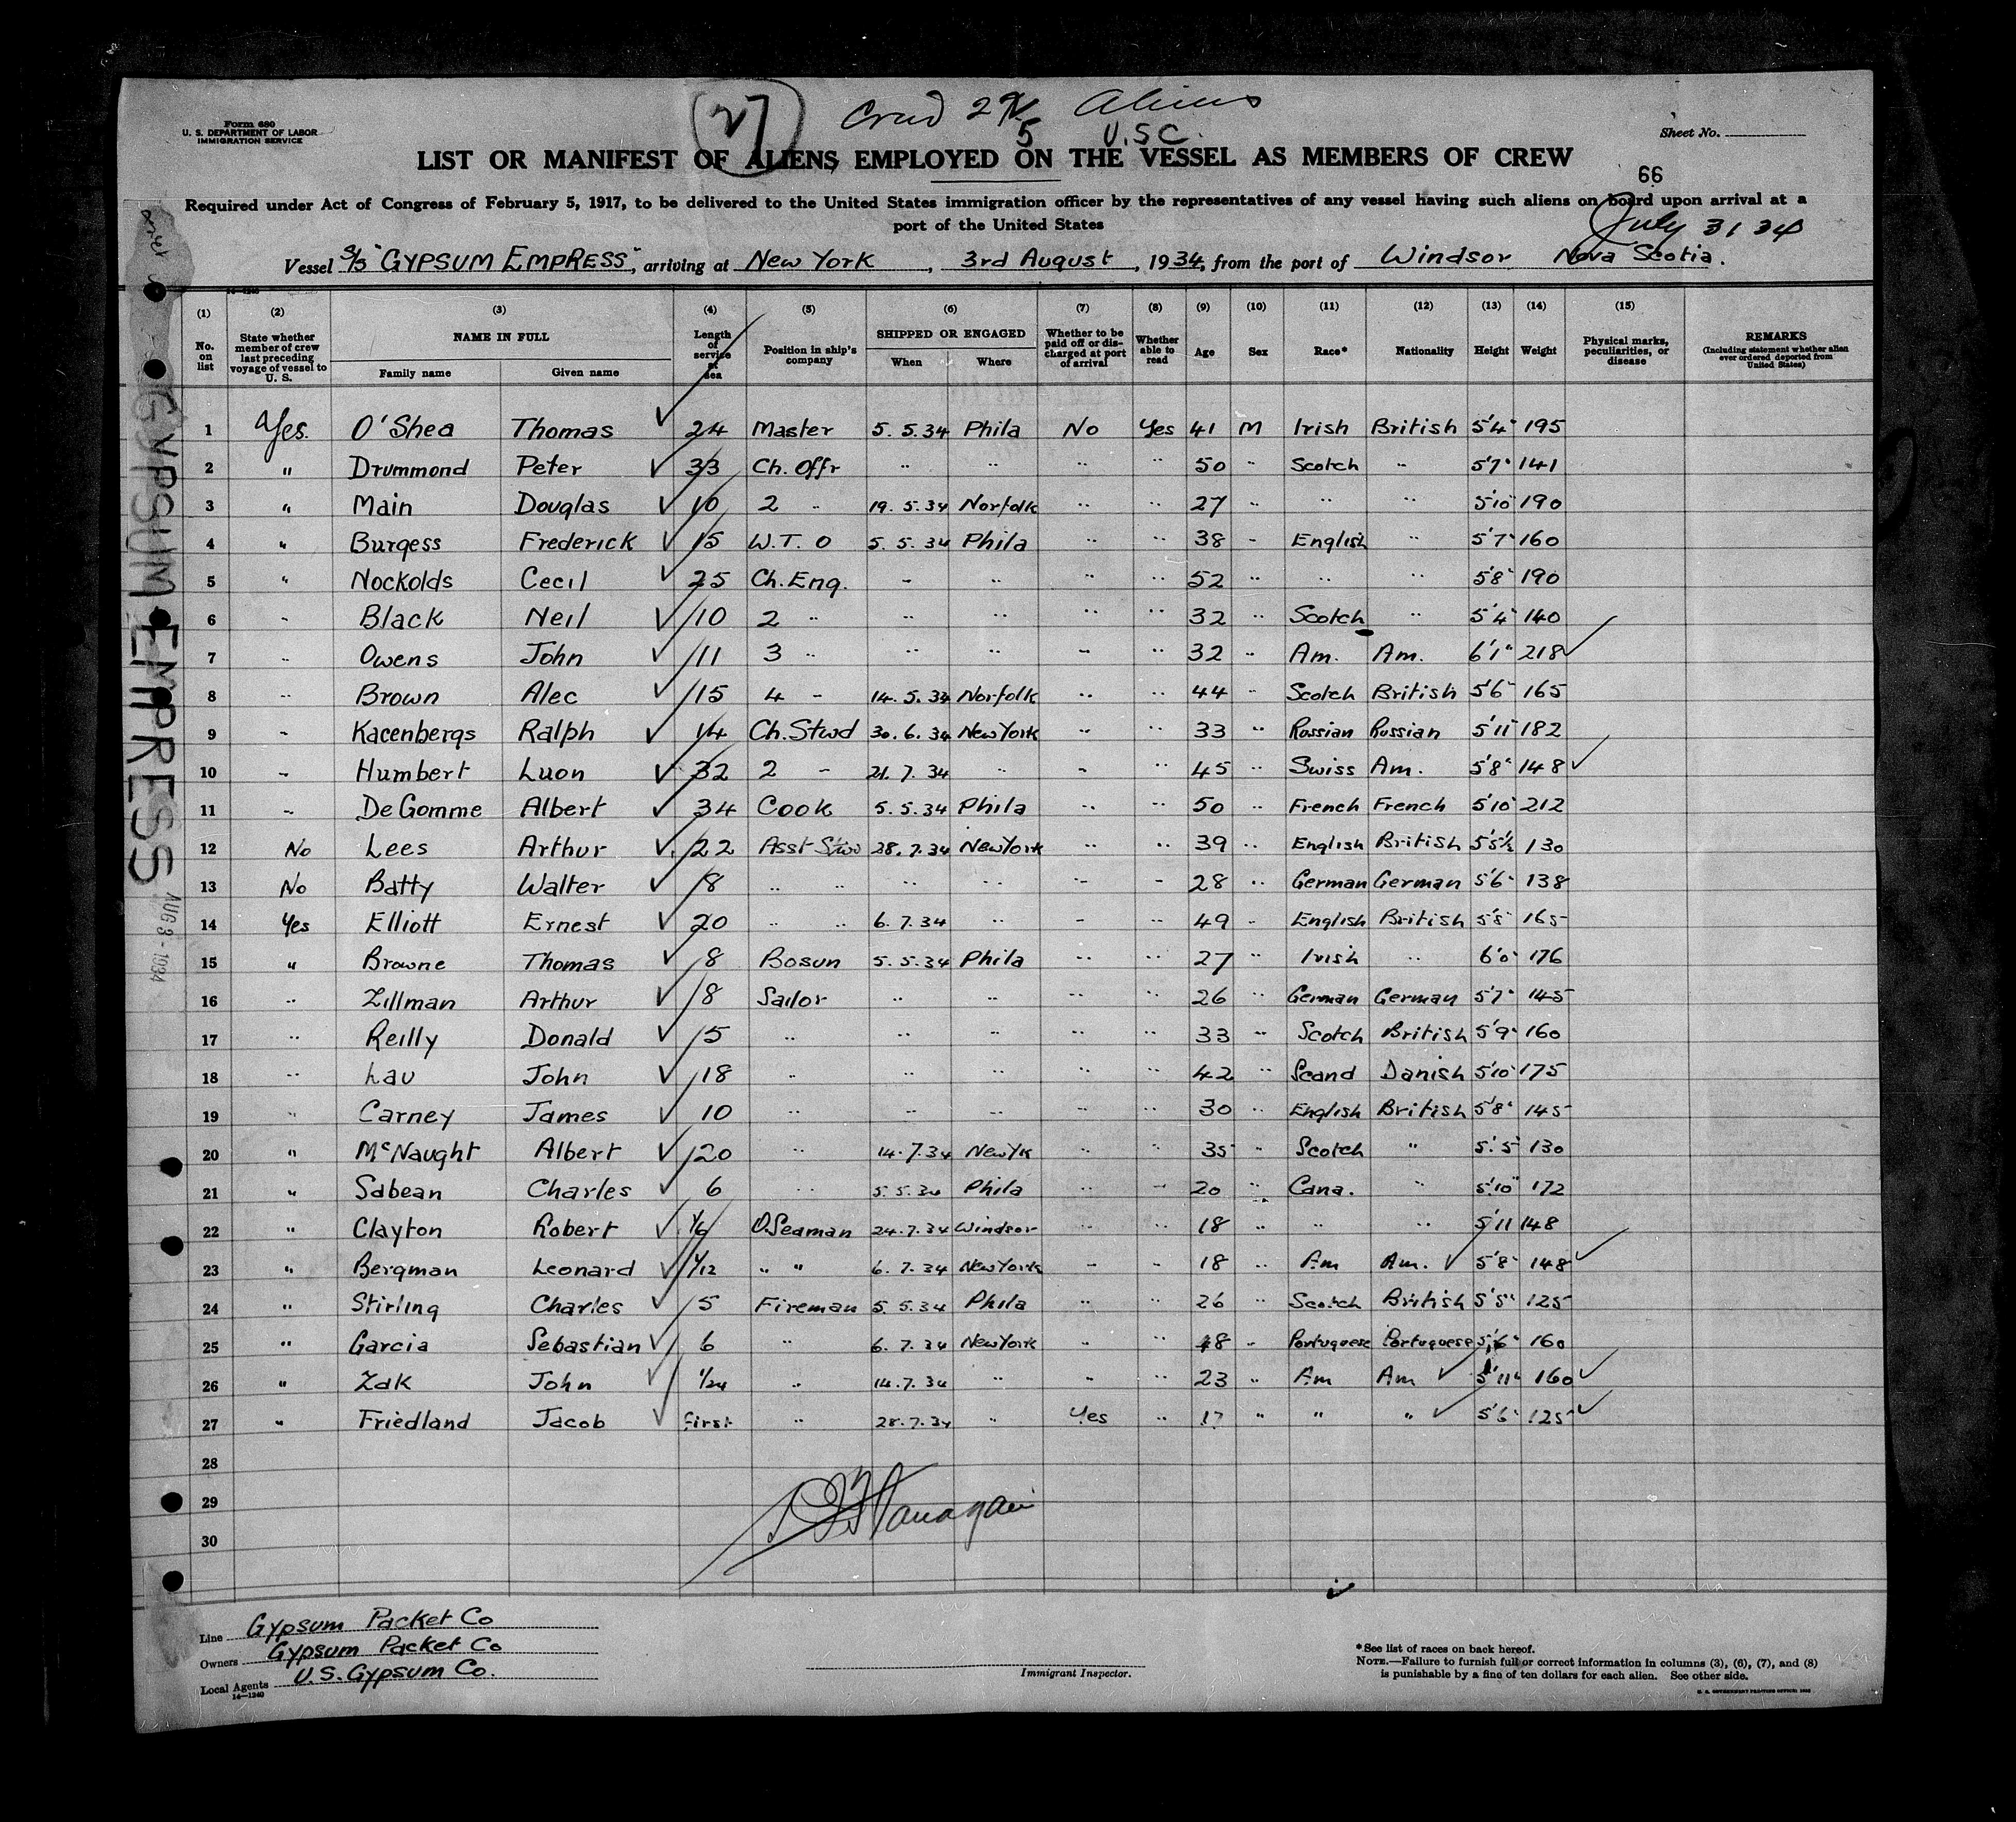 Form 680
U. S. DEPARTMENT OF LABOR
IMMIGRATION SERVICE
27 Crew Aliens
5 U.S.C.
Sheet No.
LIST OR MANIFEST OF ALIENS EMPLOYED ON THE VESSEL AS MEMBERS OF CREW
66
Required under Act of Congress of February 5, 1917, to be delivered to the United States immigration officer by the representatives of any vessel having such aliens on board upon arrival at a
port of the United States
July 31 34
Vessel S/S "GYPSUM EMPRESS", arriving at New York, 3rd August, 1934, from the port of Windsor Nova Scotia.
14-1240
(1) (2) (3) (4) (5) (6) (7) (8) (9) (10) (11) (12) (13) (14) (15)
No. on list State whether member of crew last preceding voyage of vessel to U. S. NAME IN FULL Family name Given name Length of service at sea Position in ship's company SHIPPED OR ENGAGED When Where Whether to be paid off or discharged at port of arrival Whether able to read Age Sex Race* Nationality Height Weight Physical marks, peculiarities, or disease REMARKS (Including statement whether alien ever ordered deported from United States)
1 Yes. O'Shea Thomas ✓ 24 Master 5.5.34 Phila No Yes 41 M Irish British 5'4" 195
2 " Drummond Peter ✓ 33 Ch. Offr " " " " 50 " Scotch " 5'7" 141
3 " Main Douglas ✓ 10 2 " 19.5.34 Norfolk " " 27 " " " 5'10" 190
4 " Burgess Frederick ✓ 15 W.T.O 5.5.34 Phila " " 38 " English " 5'7" 160
5 " Nockolds Cecil ✓ 25 Ch. Eng. " " " " 52 " " " 5'8" 190
6 " Black Neil ✓ 10 2 " " " " " 32 " Scotch " 5'4" 140
7 " Owens John ✓ 11 3 " " " " " 32 " Am. Am. 6'1" 218 ✓
8 " Brown Alec ✓ 15 4 " 14.5.34 Norfolk " " 44 " Scotch British 5'6" 165
9 " Kacenbergs Ralph ✓ 14 Ch. Stwd 30.6.34 New York " " 33 " Russian Russian 5'11" 182
10 " Humbert Luon ✓ 32 2 " 21.7.34 " " " 45 " Swiss Am. 5'8" 148 ✓
11 " DeGomme Albert ✓ 34 Cook 5.5.34 Phila " " 50 " French French 5'10" 212
12 No Lees Arthur ✓ 22 Asst Stwd 28.7.34 New York " " 39 " English British 5'5½ 130
13 No Batty Walter ✓ 8 " " " " " " 28 " German German 5'6" 138
14 Yes Elliott Ernest ✓ 20 " " 6.7.34 " " " 49 " English British 5'8" 165
15 " Browne Thomas ✓ 8 Bosun 5.5.34 Phila " " 27 " Irish " 6'0" 176
16 " Zillman Arthur ✓ 8 Sailor " " " " 26 " German German 5'7" 145
17 " Reilly Donald ✓ 5 " " " " " 33 " Scotch British 5'9" 160
18 " Lau John ✓ 18 " " " " " 42 " Scand Danish 5'10" 175
19 " Carney James ✓ 10 " " " " " 30 " English British 5'8" 145
20 " McNaught Albert ✓ 20 " 14.7.34 New Yk " " 35 " Scotch " 5'5" 130
21 " Sabean Charles ✓ 6 " 5.5.34 Phila " " 20 " Cana. " 5'10" 172
22 " Clayton Robert ✓ 1/6 O.Seaman 24.7.34 Windsor " " 18 " " " 5'11 148
23 " Bergman Leonard ✓ 1/12 " " 6.7.34 New York " " 18 " Am Am. ✓ 5'8" 148 ✓
24 " Stirling Charles ✓ 5 Fireman 5.5.34 Phila " " 26 " Scotch British 5'5" 125
25 " Garcia Sebastian ✓ 6 " 6.7.34 New York " " 48 " Portuguese Portuguese 5'6" 160
26 " Zak John ✓ 1/24 " 14.7.34 " " " 23 " Am Am ✓ 5'11" 160 ✓
27 " Friedland Jacob ✓ first " 28.7.34 " Yes " 17 " " " ✓ 5'6" 125 ✓
28
29
30
Line Gypsum Packet Co
Owners Gypsum Packet Co
Local Agents U.S. Gypsum Co.
14-1240
Immigrant Inspector.
*See list of races on back hereof.
NOTE.—Failure to furnish full or correct information in columns (3), (6), (7), and (8)
is punishable by a fine of ten dollars for each alien. See other side.
U. S. GOVERNMENT PRINTING OFFICE
GYPSUM EMPRESS
AUG 3 - 1934